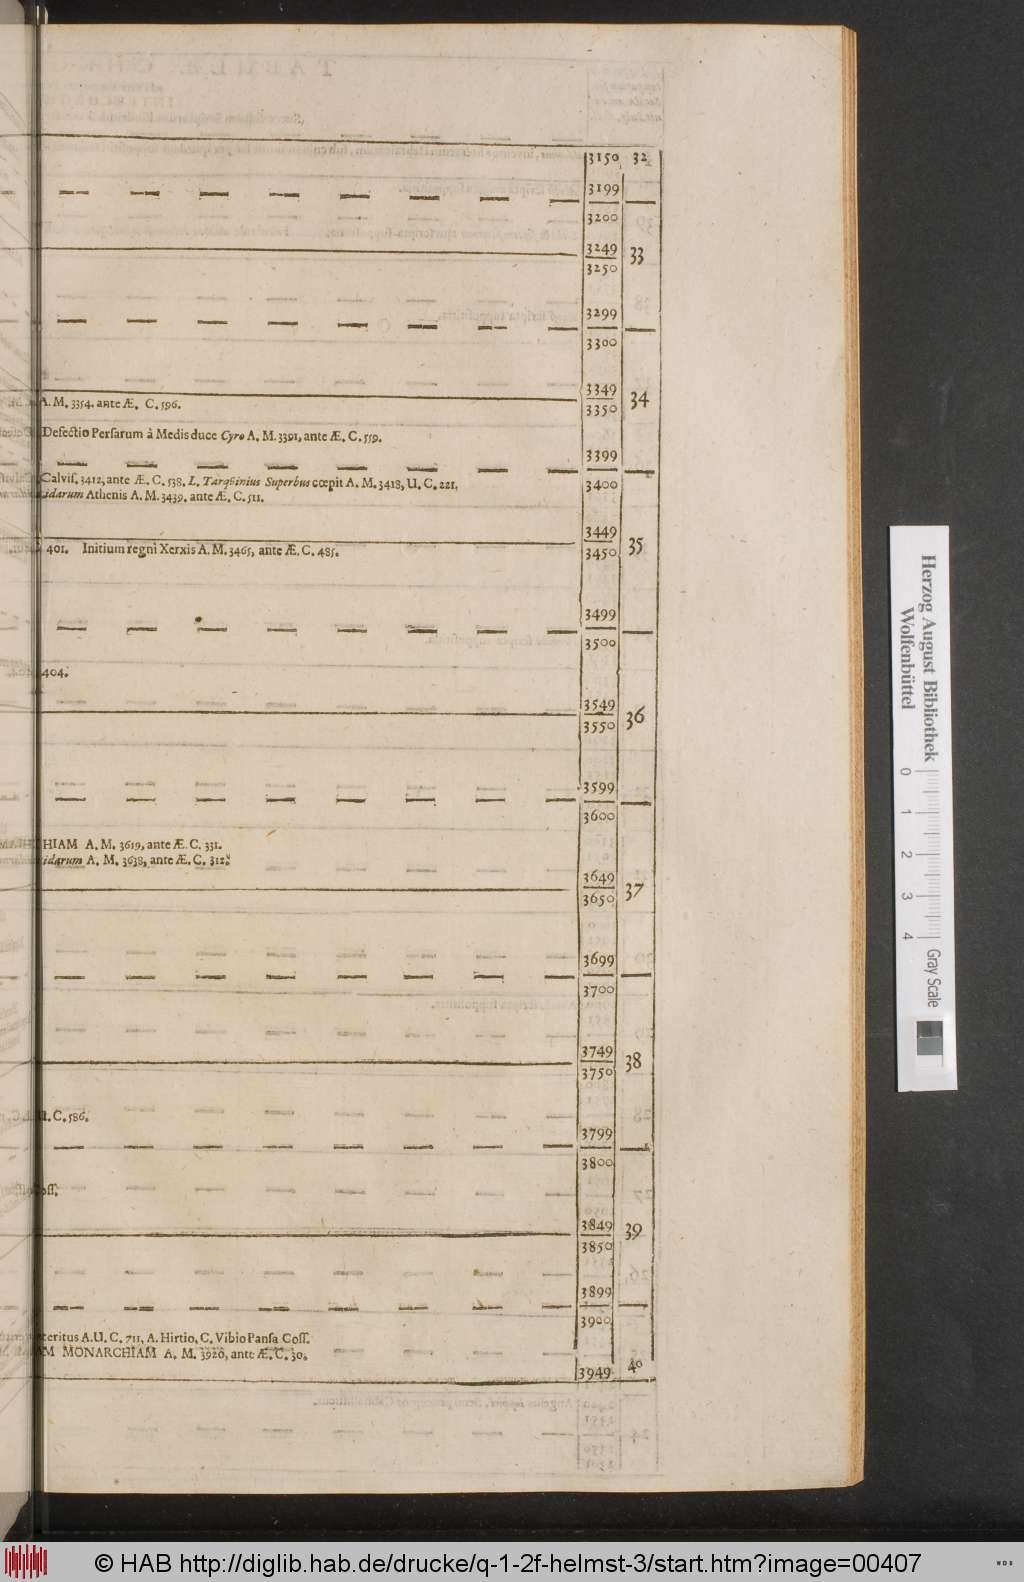 3150 32
3199
3200
3249
33
3250
3299
3300
3349
34
A. M. 3354. ante Æ. C. 596.
3350
Defectio Persarum à Medis duce Cyro A. M. 3391, ante Æ. C. 559.
3399
Calvis. 3412, ante Æ. C. 538. L. Tarquinius Superbus cœpit A. M. 3418, U. C. 221.
3400
idarum Athenis A. M. 3439. ante Æ. C. 511.
3449
35
401. Initium regni Xerxis A. M. 3465, ante Æ. C. 485.
3450
3499
3500
404.
3549
36
3550
3599
3600
HIAM A. M. 3619, ante Æ. C. 331.
idarum A. M. 3638, ante Æ. C. 312.
3649
37
3650
3699
3700
3749
38
3750
U. C. 586.
3799
3800
oss.
3849
39
3850
3899
3900
teritus A. U. C. 711, A. Hirtio, C. Vibio Pansa Coss.
AM MONARCHIAM A. M. 3920, ante Æ. C. 30.
3949 40
Herzog August Bibliothek
Wolfenbüttel
0 1 2 3 4
Gray Scale
© HAB http://diglib.hab.de/drucke/q-1-2f-helmst-3/start.htm?image=00407